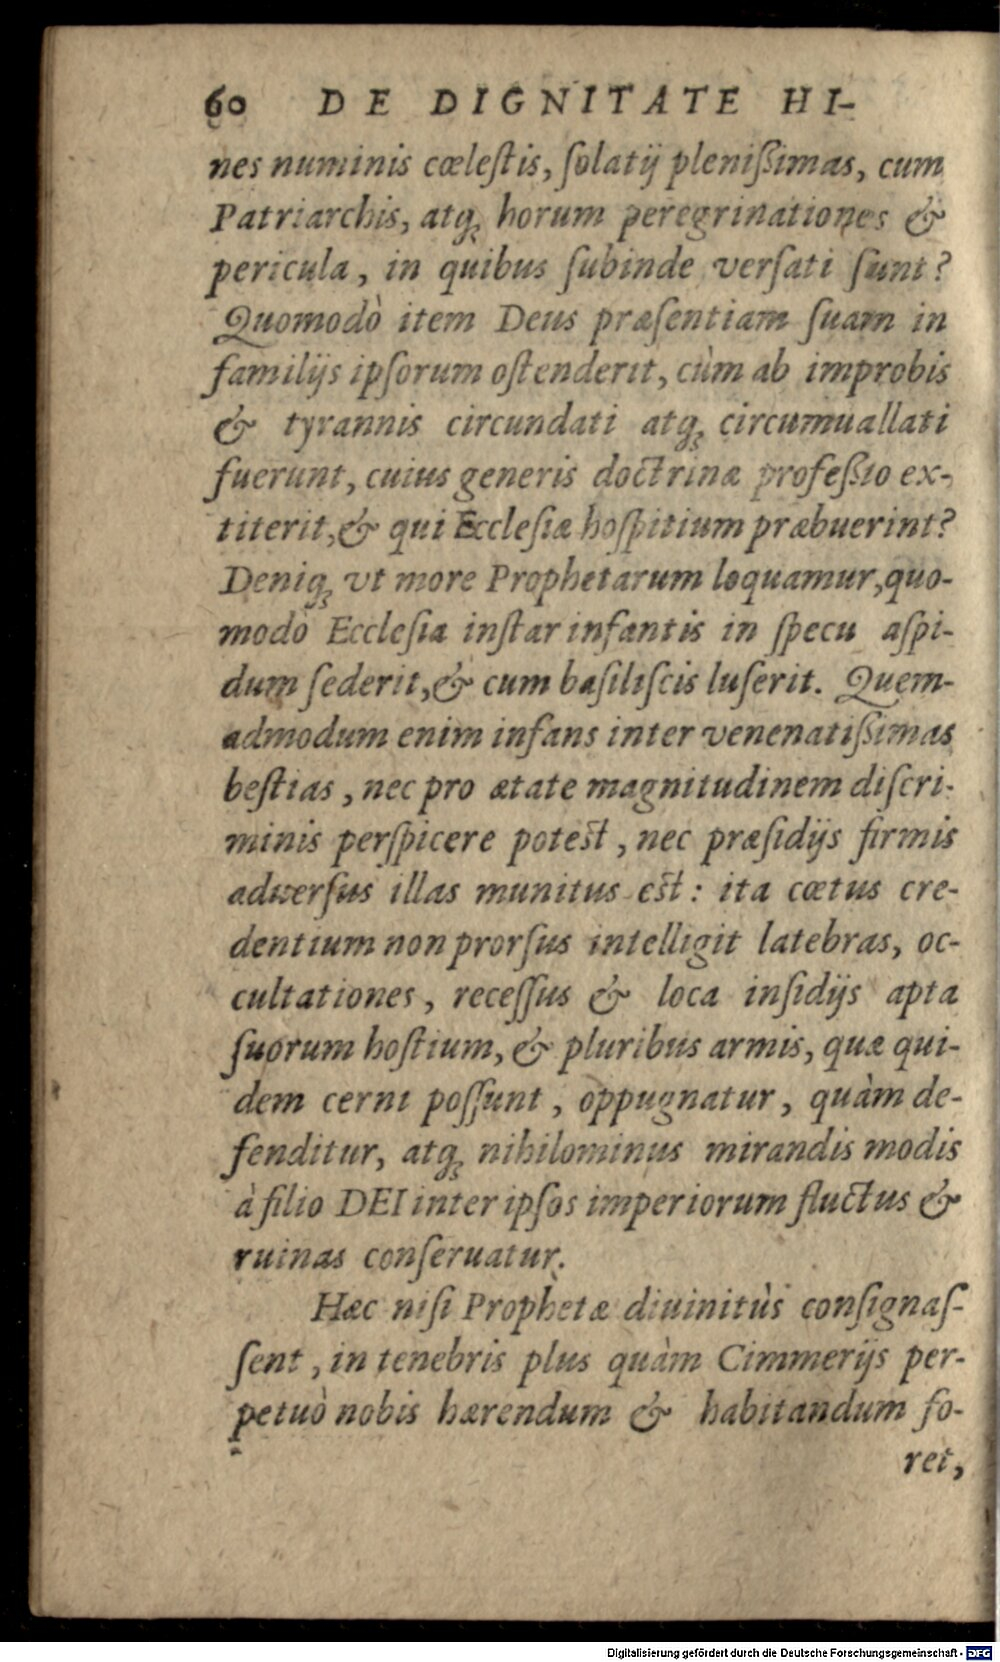 60 DE DIGNITATE HI-
nes numinis cœleſtis, ſolatij pleniſsimas, cum
Patriarchis, atq́; horum peregrinationes &
pericula, in quibus ſubinde verſati ſunt?
Quomodò item Deus præſentiam ſuam in
familijs ipſorum oſtenderit, cùm ab improbis
& tyrannis circundati atq́; circumuallati
fuerunt, cuius generis doctrinæ profeſsio ex-
titerit, & qui Eccleſiæ hoſpitium præbuerint?
Deniq́; vt more Prophetarum loquamur, quo-
modò Eccleſia inſtar infantis in ſpecu aſpi-
dum ſederit, & cum baſiliſcis luſerit. Quem-
admodum enim infans inter venenatiſsimas
beſtias, nec pro ætate magnitudinem diſcri-
minis perſpicere poteſt, nec præſidijs firmis
aduerſus illas munitus eſt: ita cœtus cre-
dentium non prorſus intelligit latebras, oc-
cultationes, receſſus & loca inſidijs apta
ſuorum hoſtium, & pluribus armis, quæ qui-
dem cerni poſſunt, oppugnatur, quàm de-
fenditur, atq́; nihilominus mirandis modis
à filio DEI inter ipſos imperiorum fluctus &
ruinas conſeruatur.
Hæc niſi Prophetæ diuinitùs conſignaſ-
ſent, in tenebris plus quàm Cimmerijs per-
petuò nobis hærendum & habitandum fo-
ret,
Digitalisierung gefördert durch die Deutsche Forschungsgemeinschaft - DFG